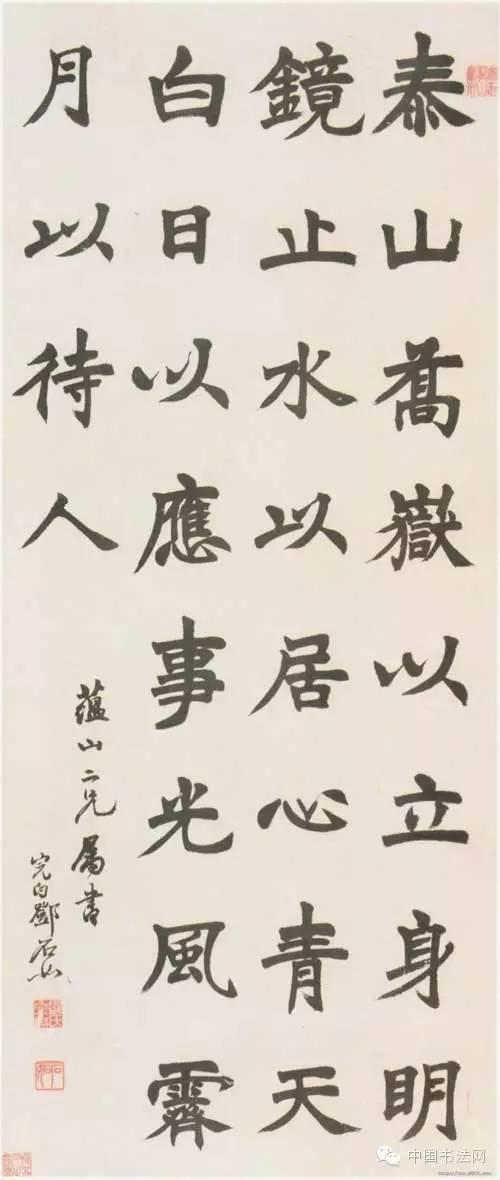 泰山喬嶽以立身明
鏡止水以居心青天
白日以應事光風霽
月以待人
蘊山二兄屬書
完白鄧石如
中国书法网